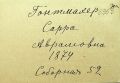 Гонтмалер
Сарра
Авраамовна
1874
Соборная 59